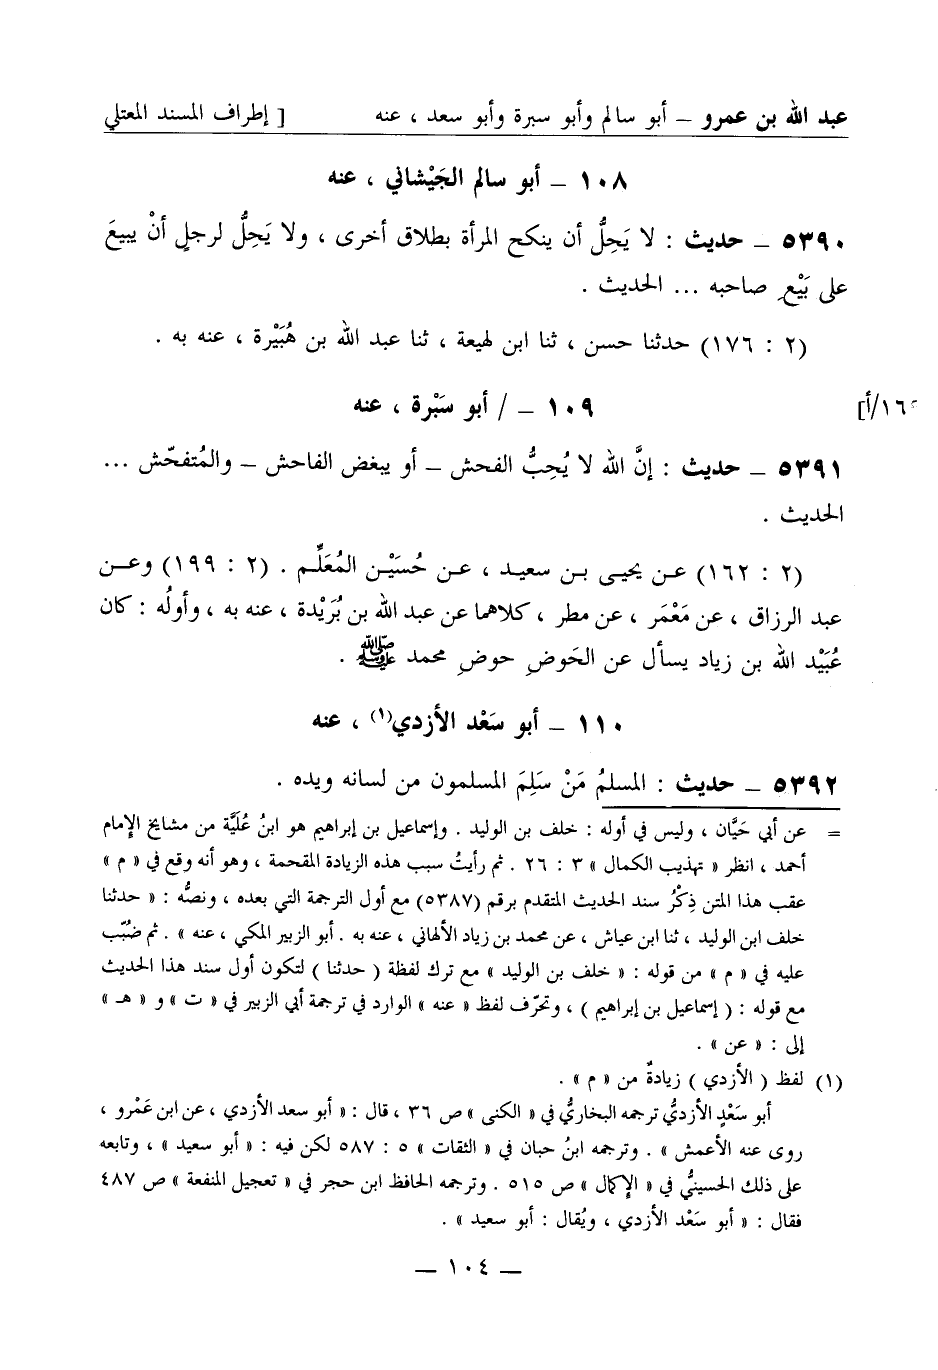 عبد الله بن عمرو – أبو سالم وأبو سبرة وأبو سعد ، عنه [ إطراف المسند المعتلي
١٠٨ – أبو سالم الجَيْشاني ، عنه
٥٣٩٠ – حديث : لا يَحِلُّ أن ينكح المرأة بطلاق أخرى ، ولا يَحِلُّ لرجلٍ أنْ يبيعَ
على بَيْعِ صاحبه ... الحديث .
(٢ : ١٧٦) حدثنا حسن ، ثنا ابن لهيعة ، ثنا عبد الله بن هُبَيْرة ، عنه به .
١٠٩ – / أبو سَبْرة ، عنه
١٦/أ]
٥٣٩١ – حديث : إنَّ الله لا يُحِبُّ الفحش – أو يبغض الفاحش – والمُتفحّش ...
الحديث .
(٢ : ١٦٢) عن يحيى بن سعيد ، عن حُسَيْن المُعَلِّم . (٢ : ١٩٩) وعن
عبد الرزاق ، عن مَعْمَر ، عن مطر ، كلاهما عن عبد الله بن بُرَيْدة ، عنه به ، وأولُه : كان
عُبَيْد الله بن زياد يسأل عن الحَوضِ حوضِ محمد ﷺ .
١١٠ – أبو سَعْد الأزدي(١) ، عنه
٥٣٩٢ – حديث : المسلمُ مَنْ سَلِمَ المسلمون من لسانه ويده .
= عن أبي حَيَّان ، وليس في أوله : خلف بن الوليد . وإسماعيل بن إبراهيم هو ابنُ عُلَيَّة من مشايخ الإمام
أحمد ، انظر « تهذيب الكمال » ٣ : ٢٦ . ثم رأيتُ سبب هذه الزيادة المقحمة ، وهو أنه وقع في « م »
عقب هذا المتن ذِكْرُ سند الحديث المتقدم برقم (٥٣٨٧) مع أول الترجمة التي بعده ، ونصُّه : « حدثنا
خلف ابن الوليد ، ثنا ابن عياش ، عن محمد بن زياد الألهاني ، عنه به . أبو الزبير المكي ، عنه » . ثم ضُبّب
عليه في « م » من قوله : « خلف بن الوليد » مع ترك لفظة ( حدثنا ) لتكون أول سند هذا الحديث
مع قوله : ( إسماعيل بن إبراهيم ) ، وتحرّف لفظ « عنه » الوارد في ترجمة أبي الزبير في « ت » و « هـ »
إلى : « عن » .
(١) لفظ ( الأزدي ) زيادةٌ من « م » .
أبو سَعْدٍ الأزديُّ ترجمه البخاريُّ في « الكنى » ص ٣٦ ، قال : « أبو سعد الأزدي ، عن ابن عَمْرو ،
روى عنه الأعمش » . وترجمه ابنُ حبان في « الثقات » ٥ : ٥٨٧ لكن فيه : « أبو سعيد » ، وتابعه
على ذلك الحسينيُّ في « الإكمال » ص ٥١٥ . وترجمه الحافظ ابن حجر في « تعجيل المنفعة » ص ٤٨٧
فقال : « أبو سَعْد الأزدي ، ويُقال : أبو سعيد » .
– ١٠٤ –